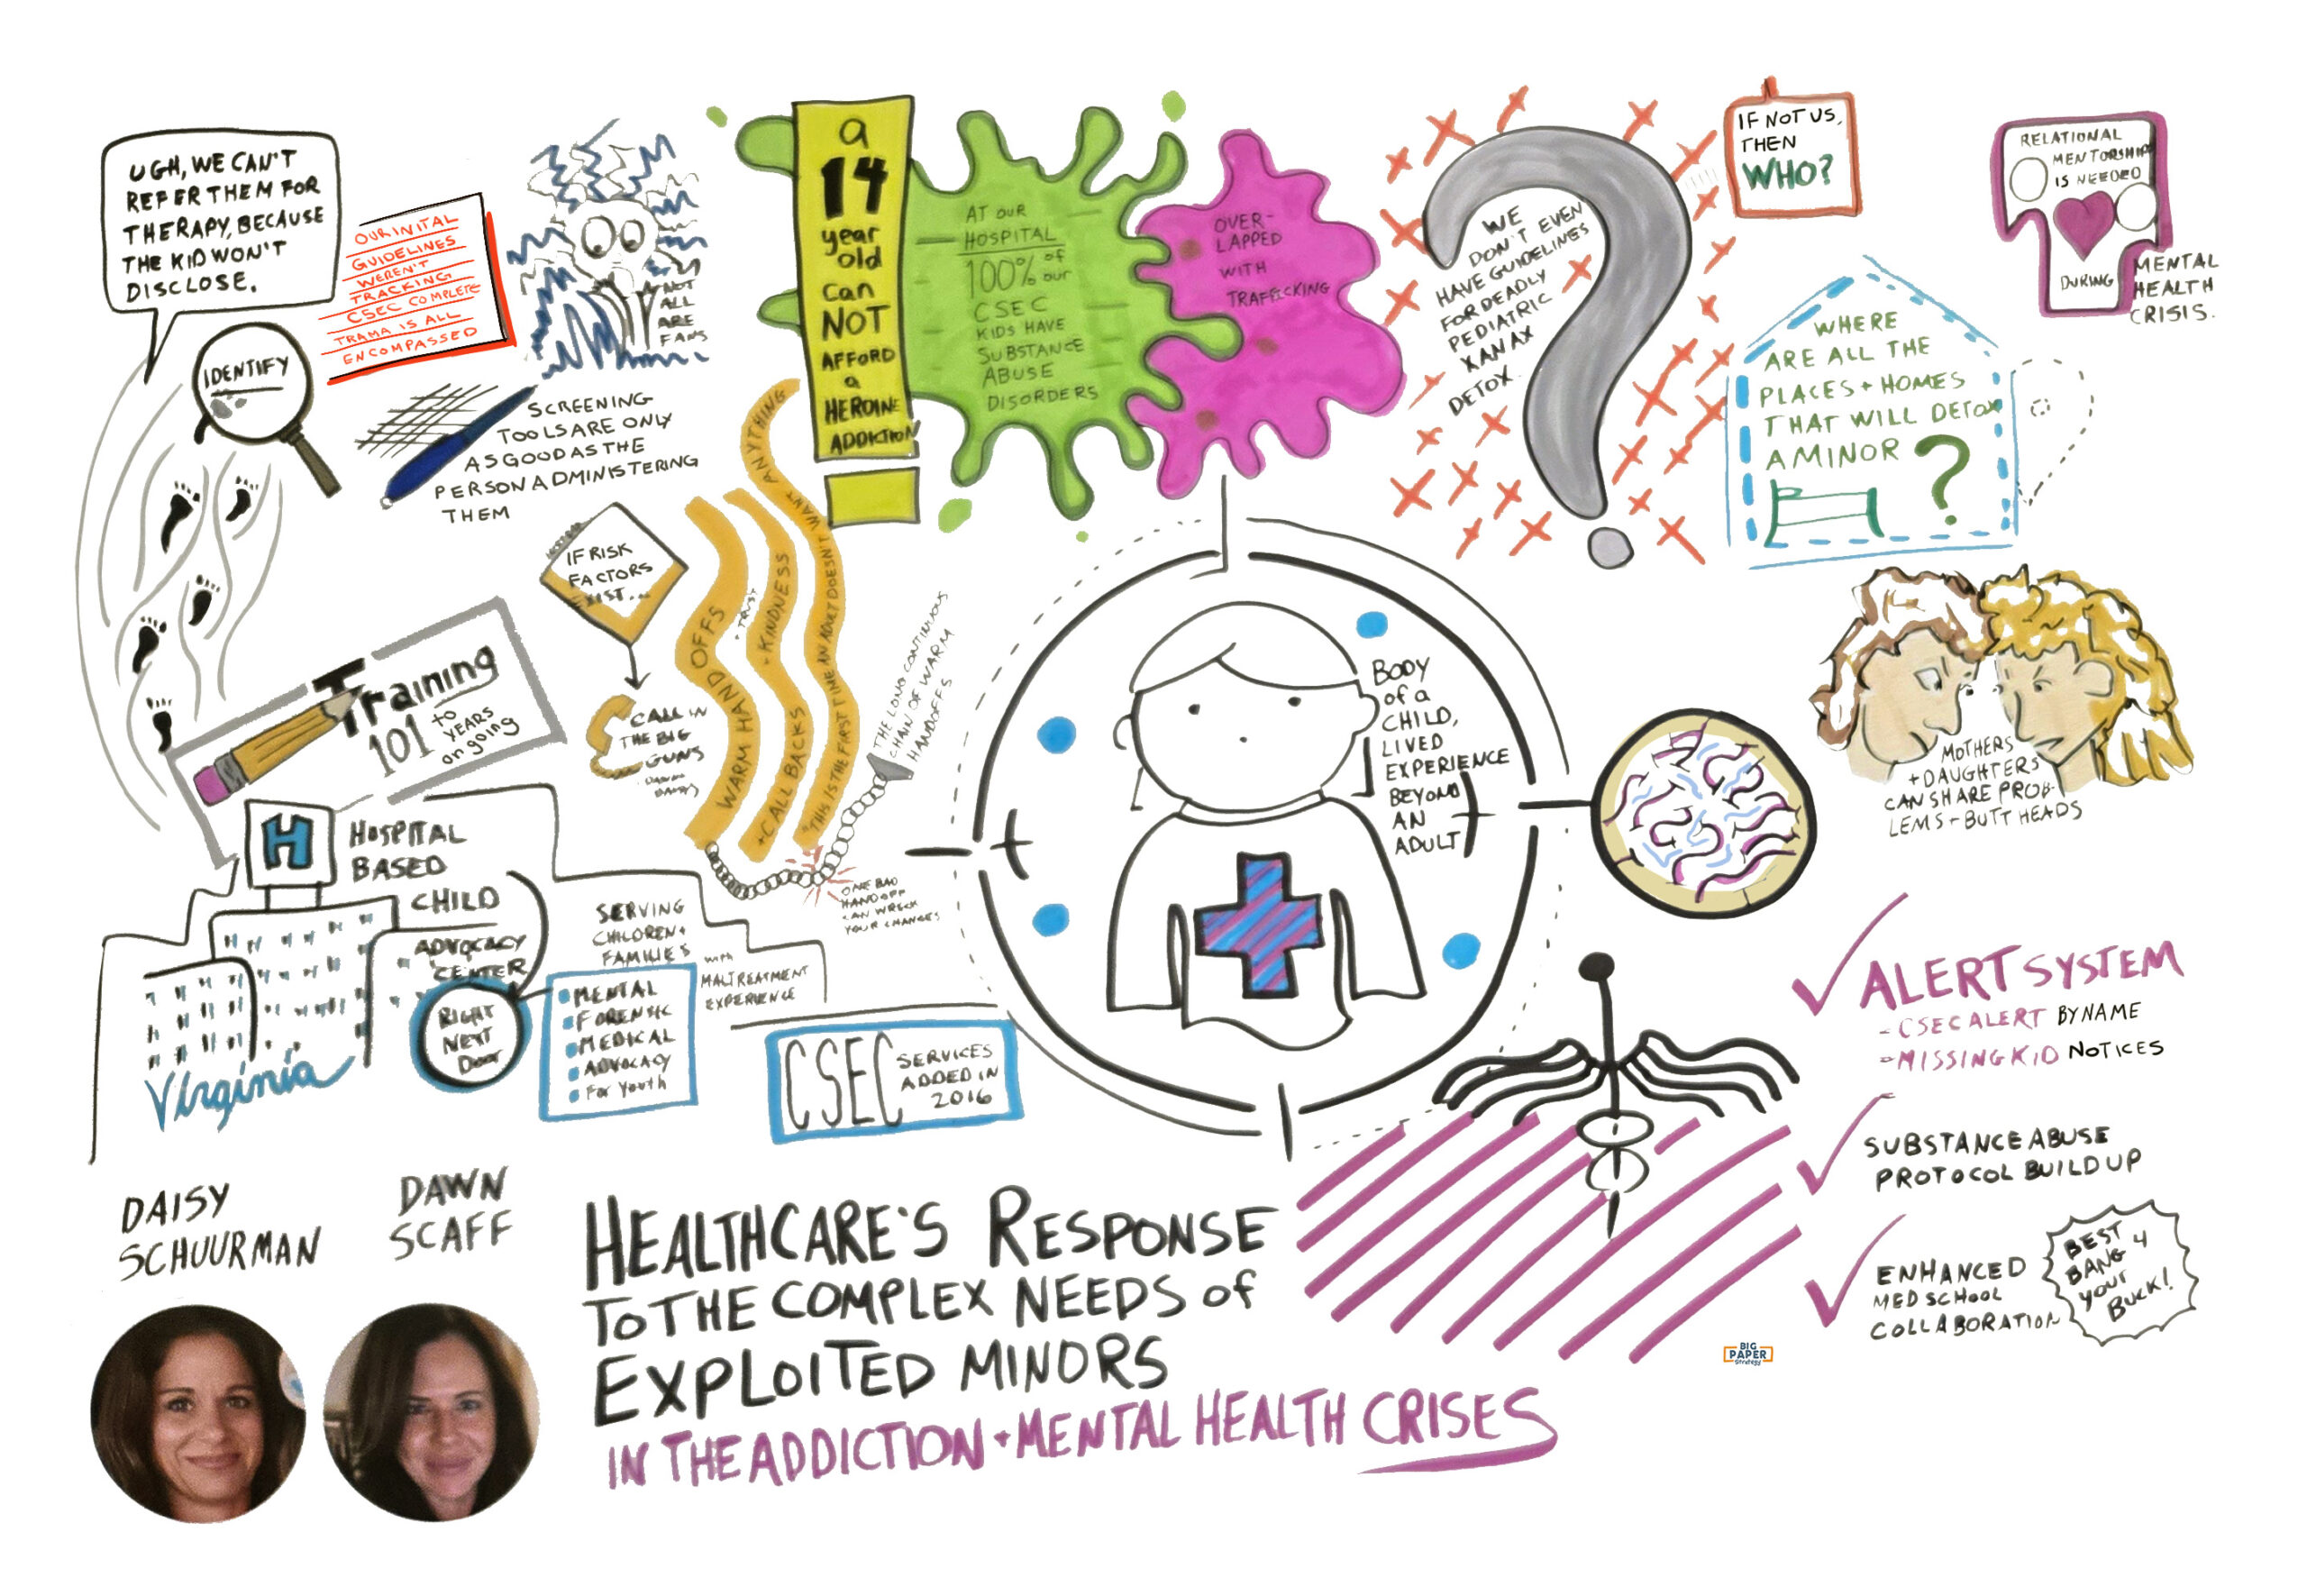 UGH, WE CAN'T
REFER THEM FOR
THERAPY, BECAUSE
THE KID WON'T
DISCLOSE.
IDENTIFY
OUR INITAL
GUIDELINES
WEREN'T
TRACKING
CSEC COMPLETE
TRAMA IS ALL
ENCOMPASSED
NOT
ALL
ARE
FANS
SCREENING
TOOLS ARE ONLY
AS GOOD AS THE
PERSON ADMINISTERING
THEM
a
14
year
old
can
NOT
AFFORD
a
HEROINE
ADDICTION
AT OUR
HOSPITAL
100% of
our
CSEC
KIDS HAVE
SUBSTANCE
ABUSE
DISORDERS
OVER-
LAPPED
WITH
TRAFFICKING
WE
DON'T EVEN
HAVE GUIDELINES
FOR DEADLY
PEDIATRIC
XANAX
DETOX.
IF NOT US,
THEN
WHO?
RELATIONAL
MENTORSHIP
IS NEEDED
DURING
MENTAL
HEALTH
CRISIS.
WHERE
ARE ALL THE
PLACES + HOMES
THAT WILL DETOX
A MINOR
?
IF RISK
FACTORS
EXIST...
CALL IN
THE BIG
GUNS
WARM HAND OFFS
+ TRUST
- KINDNESS
+ CALL BACKS
"THIS IS THE FIRST TIME AN ADULT DOESN'T WANT ANYTHING
THE LONG CONTINUOUS
CHAIN OF WARM
HANDOFFS
ONE BAD
HANDOFF
CAN WRECK
YOUR CHANGES
Training
101 to
YEARS
on going
H
HOSPITAL
BASED
CHILD
ADVOCACY
CENTER
RIGHT
NEXT
Door
Virginia
SERVING
CHILDREN +
FAMILIES with
MALTREATMENT
EXPERIENCE
MENTAL
FORENSIC
MEDICAL
ADVOCACY
For Youth
CSEC SERVICES
ADDED IN
2016
BODY
of a
CHILD,
LIVED
EXPERIENCE
BEYOND
AN
ADULT
MOTHERS
+ DAUGHTERS
CAN SHARE PROB-
LEMS + BUTT HEADS
ALERT SYSTEM
- CSEC ALERT BY NAME
- MISSING KID NOTICES
SUBSTANCE ABUSE
PROTOCOL BUILD UP
ENHANCED
MED SCHOOL
COLLABORATION
BEST
BANG 4
your
BUCK!
DAISY
SCHUURMAN
DAWN
SCAFF
HEALTHCARE'S RESPONSE
TO THE COMPLEX NEEDS of
EXPLOITED MINORS
IN THE ADDICTION + MENTAL HEALTH CRISES
BIG
PAPER
Strategy